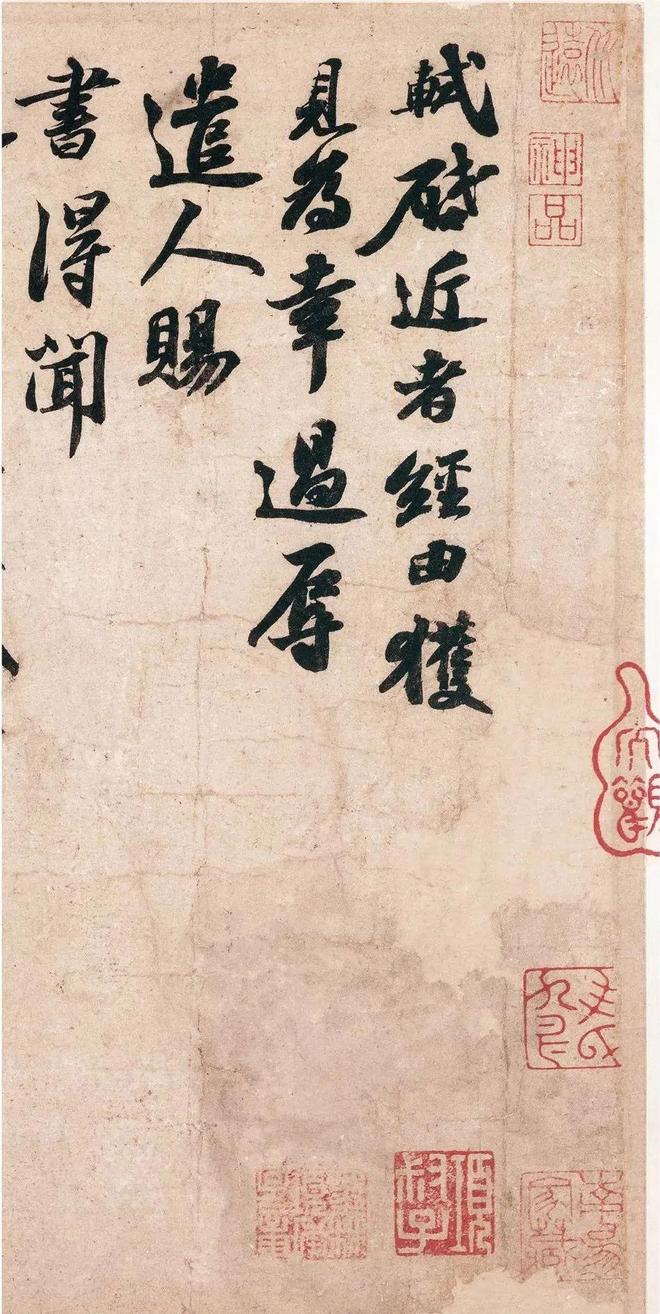 神品
軾啟近者經由獲
見為幸過辱
遣人賜
書得聞